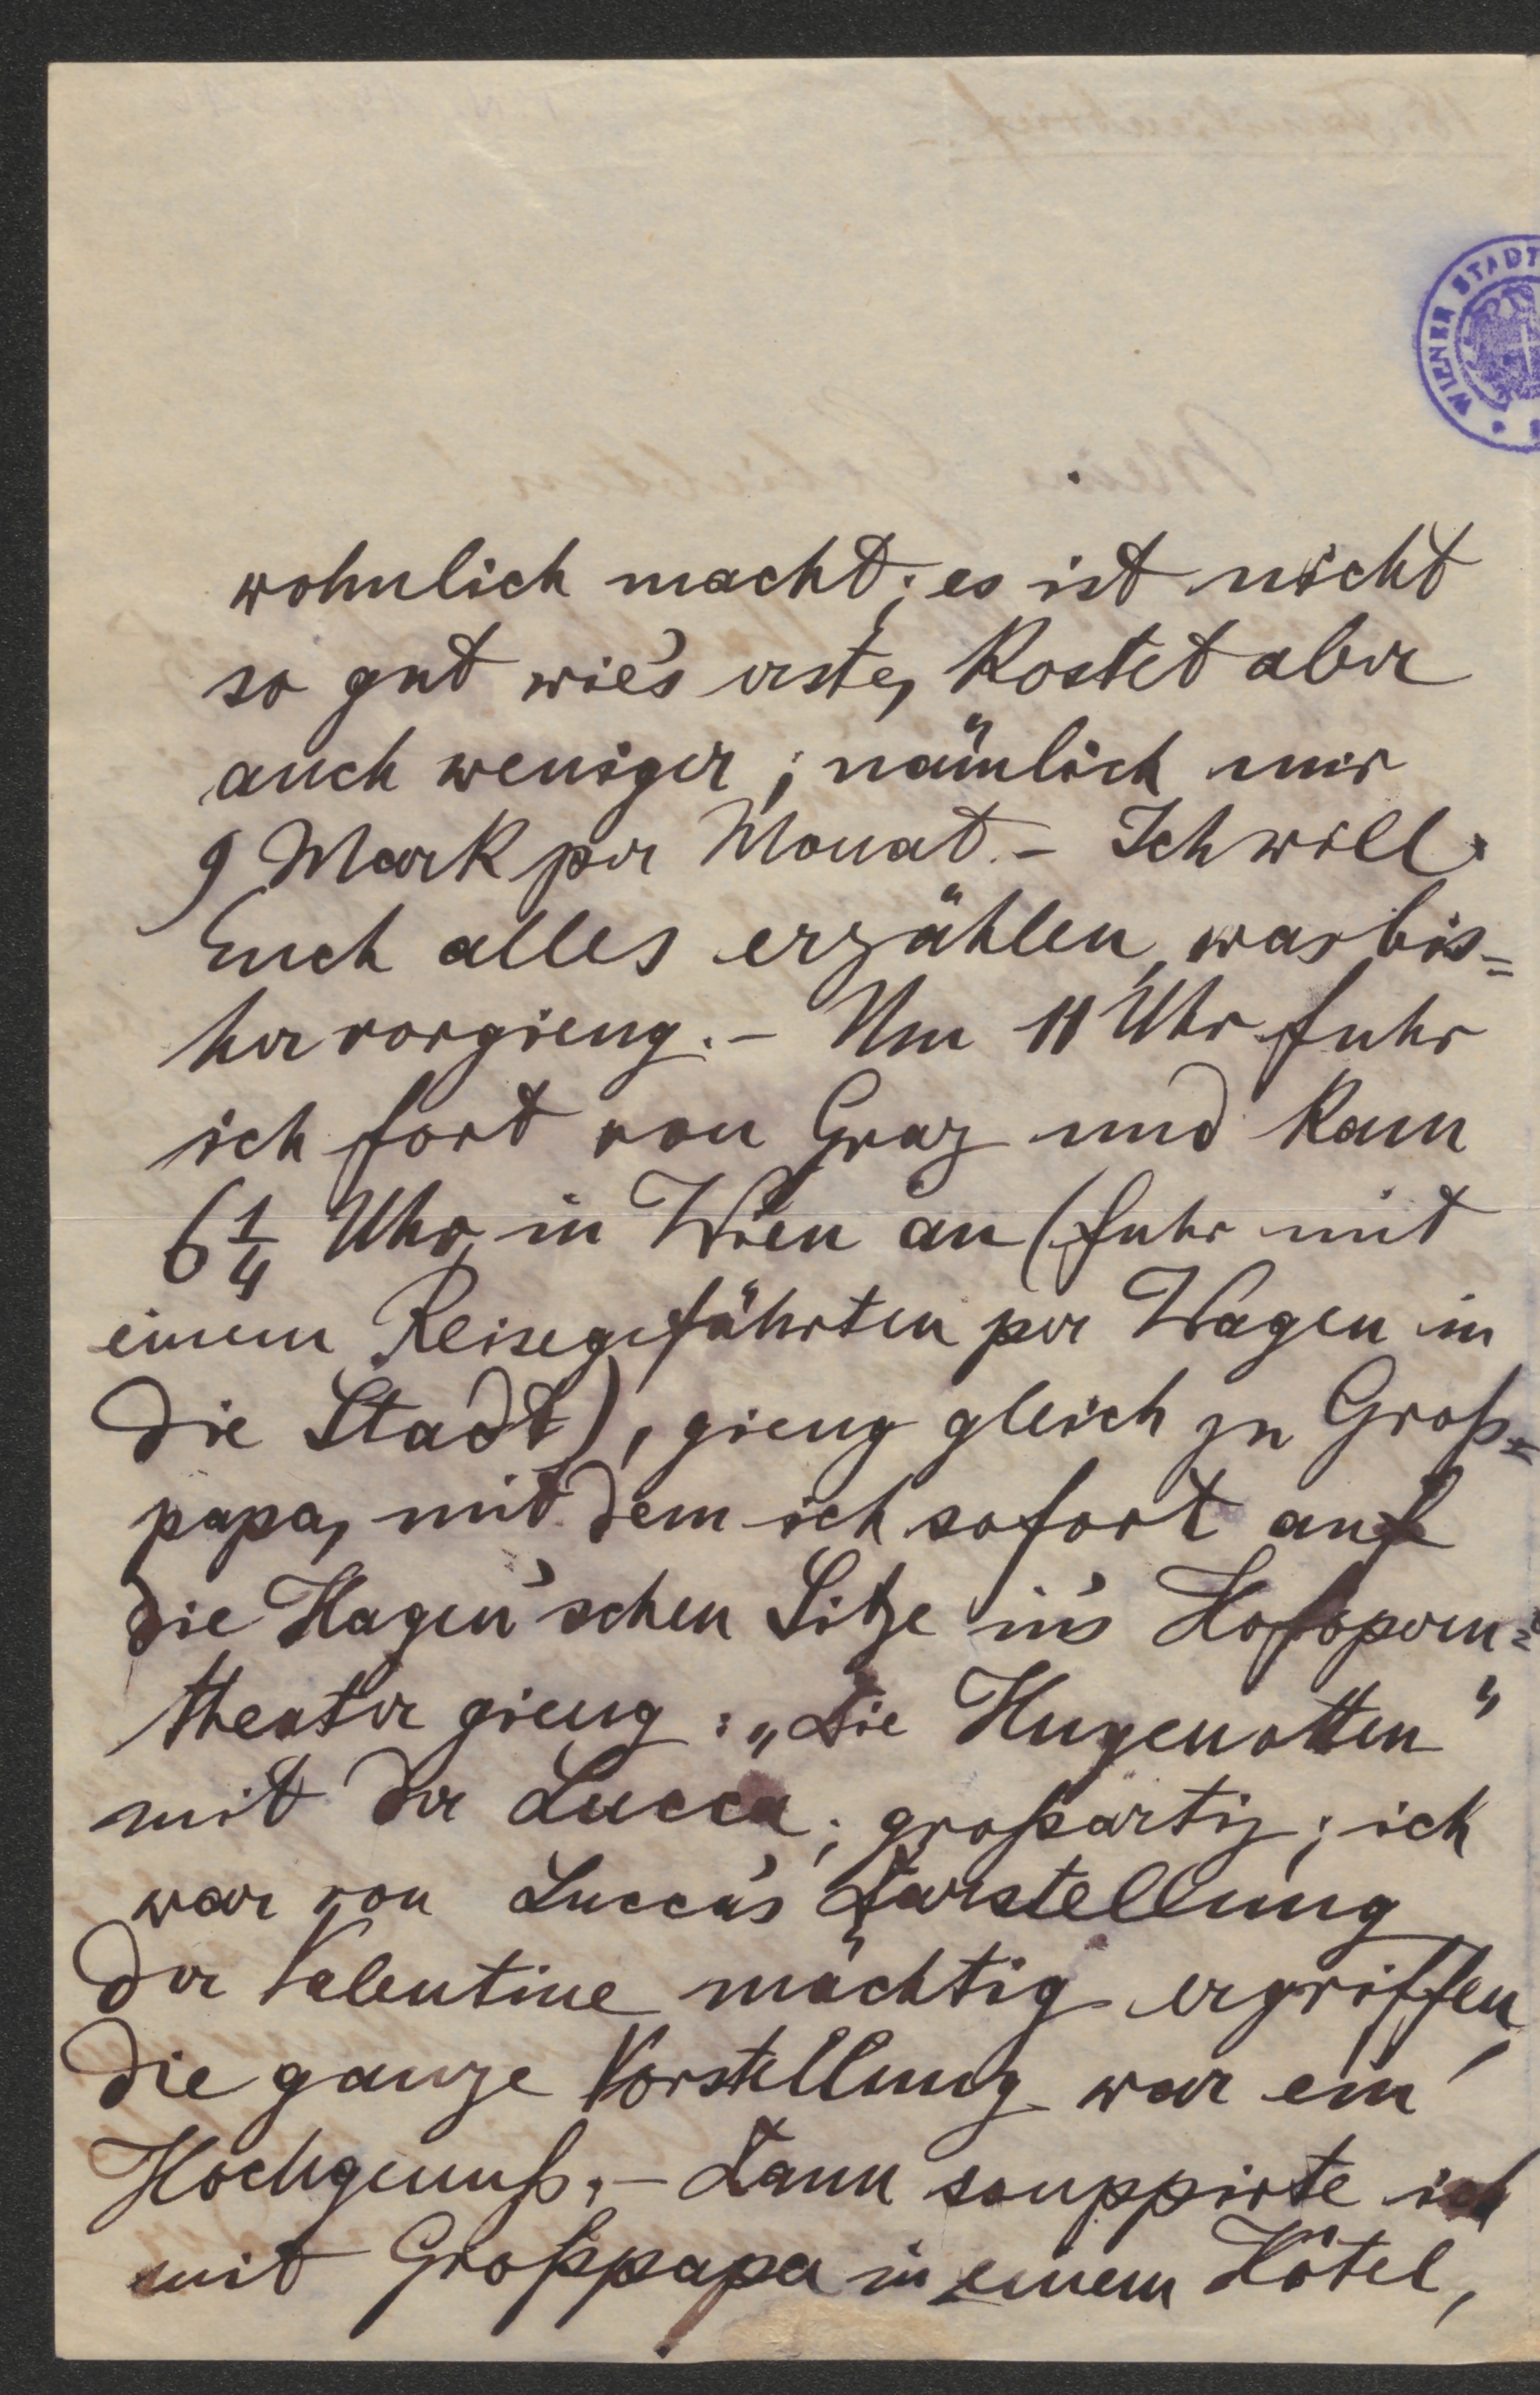 WIENER STADT
wohnlich macht; es ist nicht
so gut wie's erste, kostet aber
auch weniger; nämlich nur
9 Mark per Monat. – Ich will
Euch alles erzählen, was bis=
her vorgieng. – Um 11 Uhr fuhr
ich fort von Graz und kam
6 1/4 Uhr in Wien an (fuhr mit
einem Reisegefährten per Wagen in
die Stadt), gieng gleich zu Groß=
papa, mit dem ich sofort auf
die Hagen'schen Sitze in's Hofopern=
theater gieng: „Die Hugenotten"
mit der Lucca; großartig; ich
war von Lucca's Darstellung
der Valentine mächtig ergriffen,
die ganze Vorstellung war ein
Hochgenuß. – Dann souppirte ich
mit Großpapa in einem Hôtel,